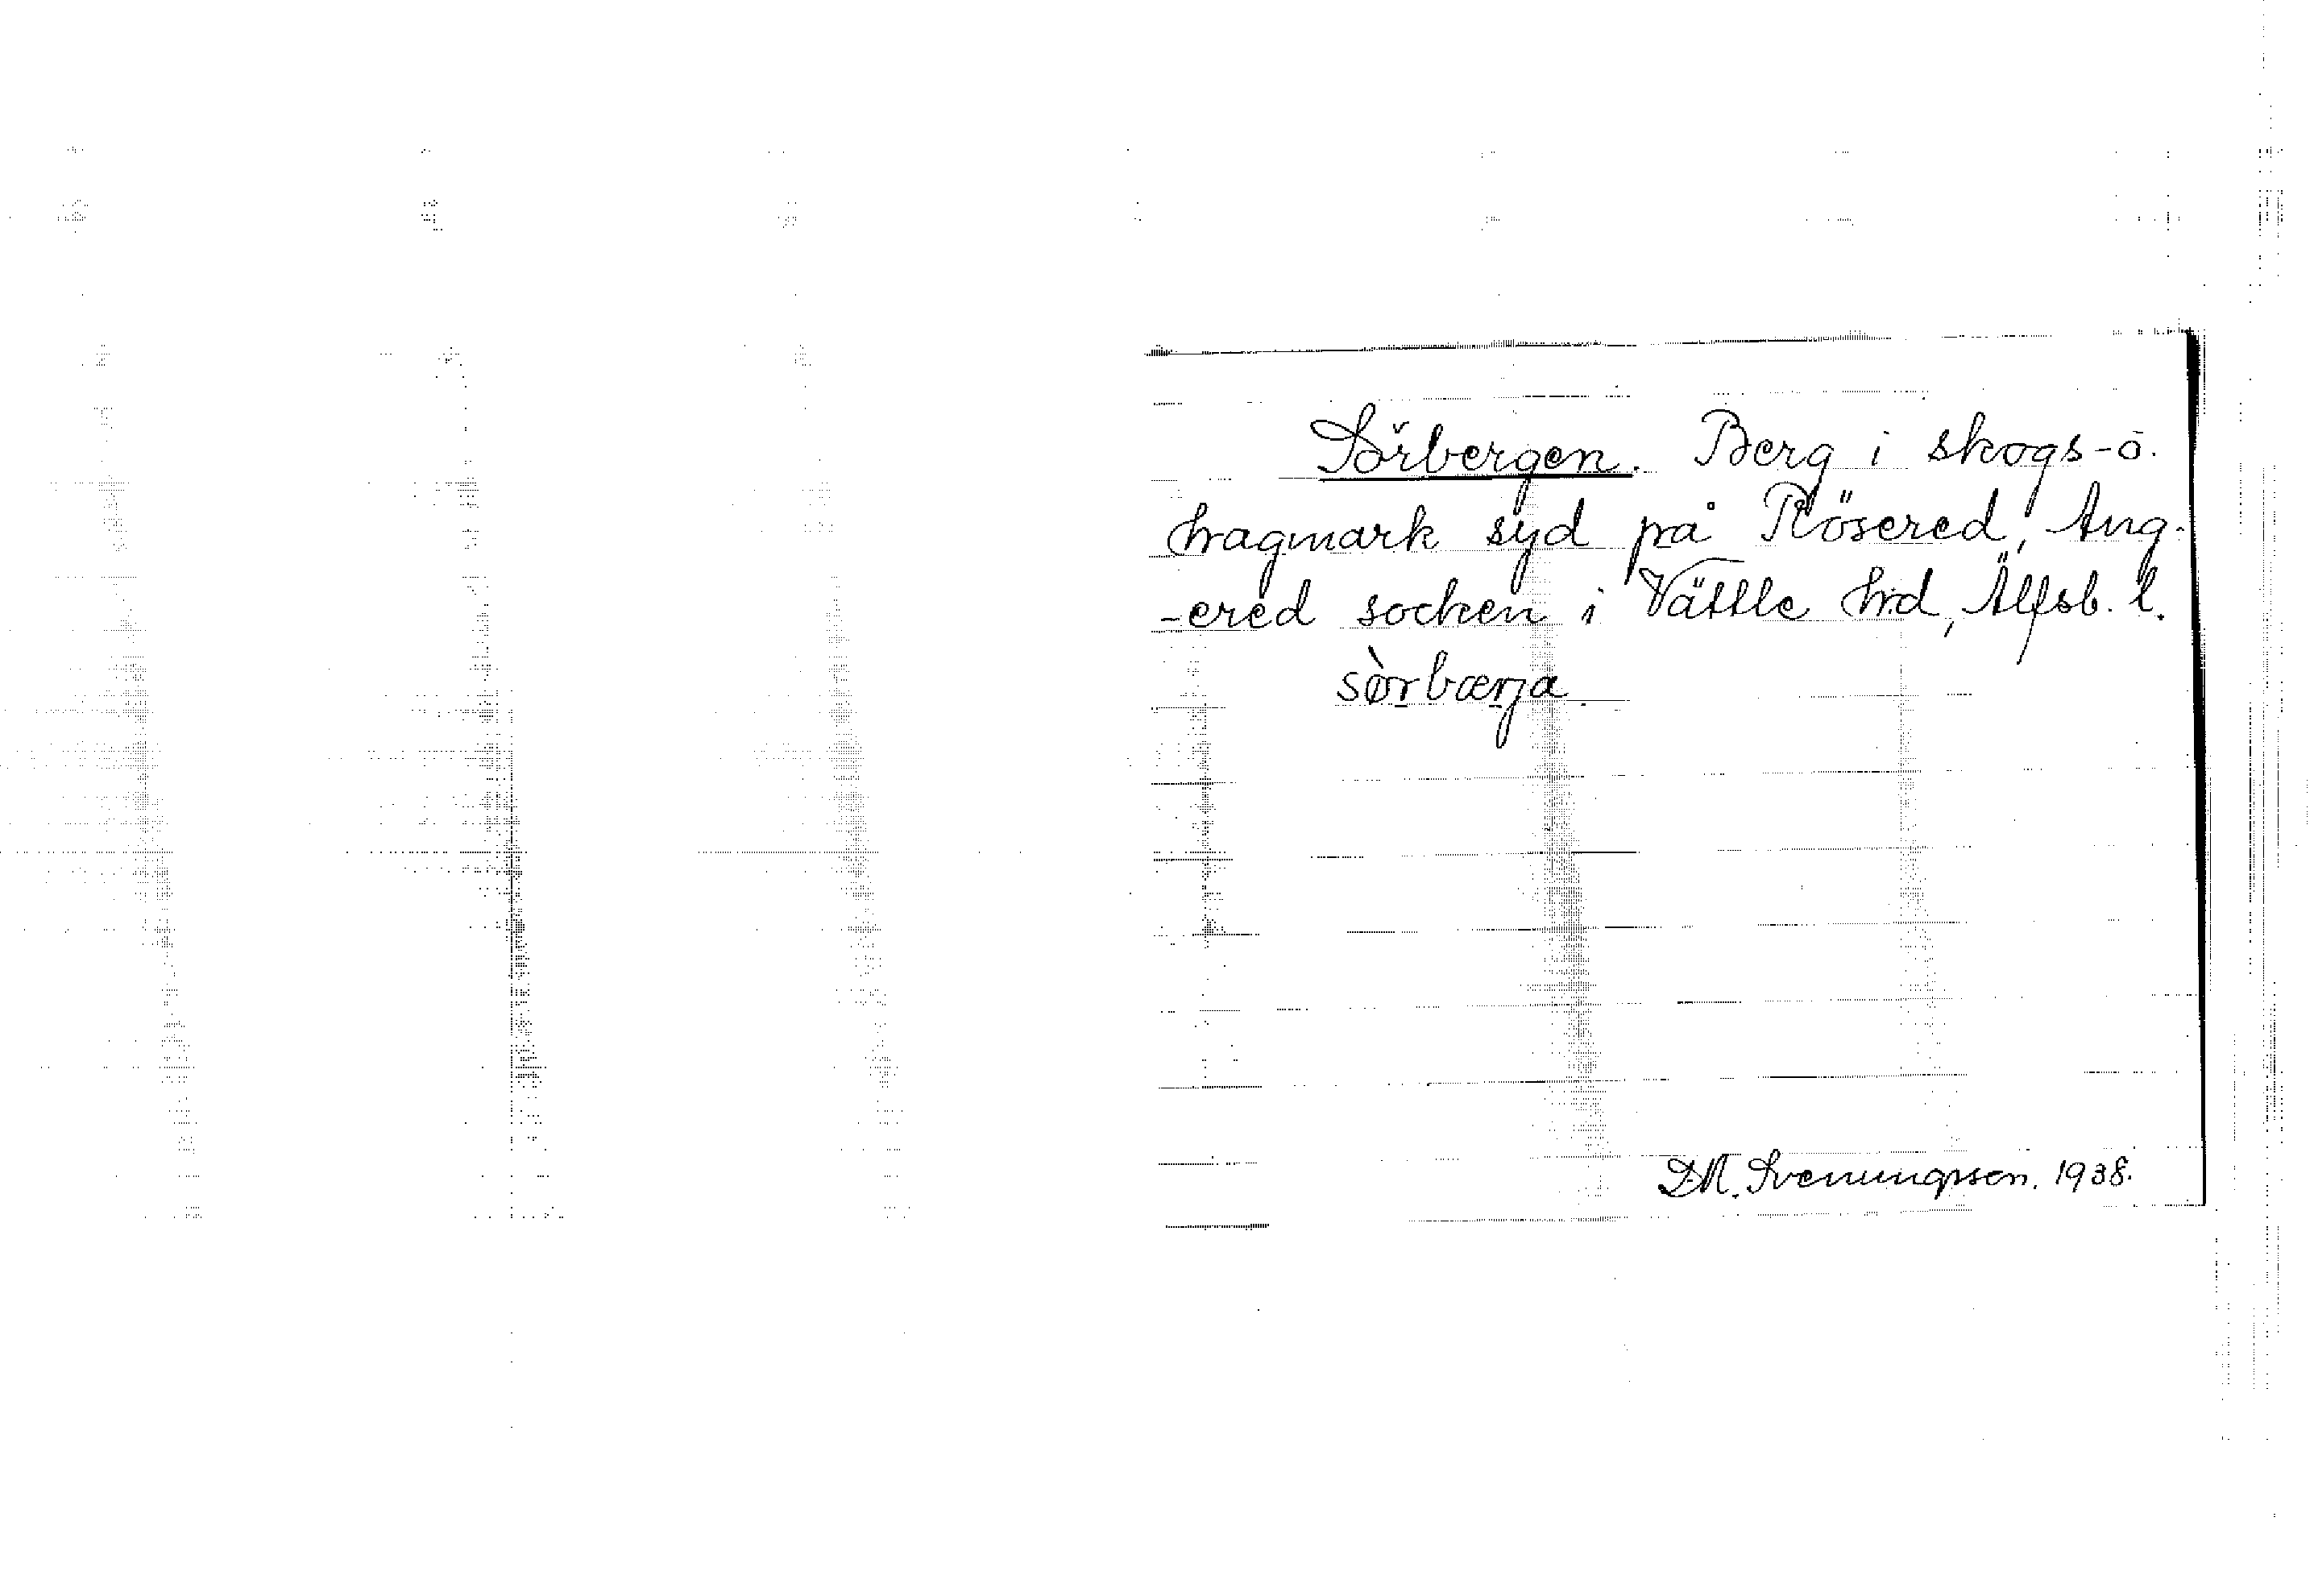 Sörbergen. Berg i skogs-o.
hagmark syd på Rösered, Ang-
-ered socken i Vättle hrd, Älfsb. l.
sòrbærja
D.M. Svenungsson. 1938.